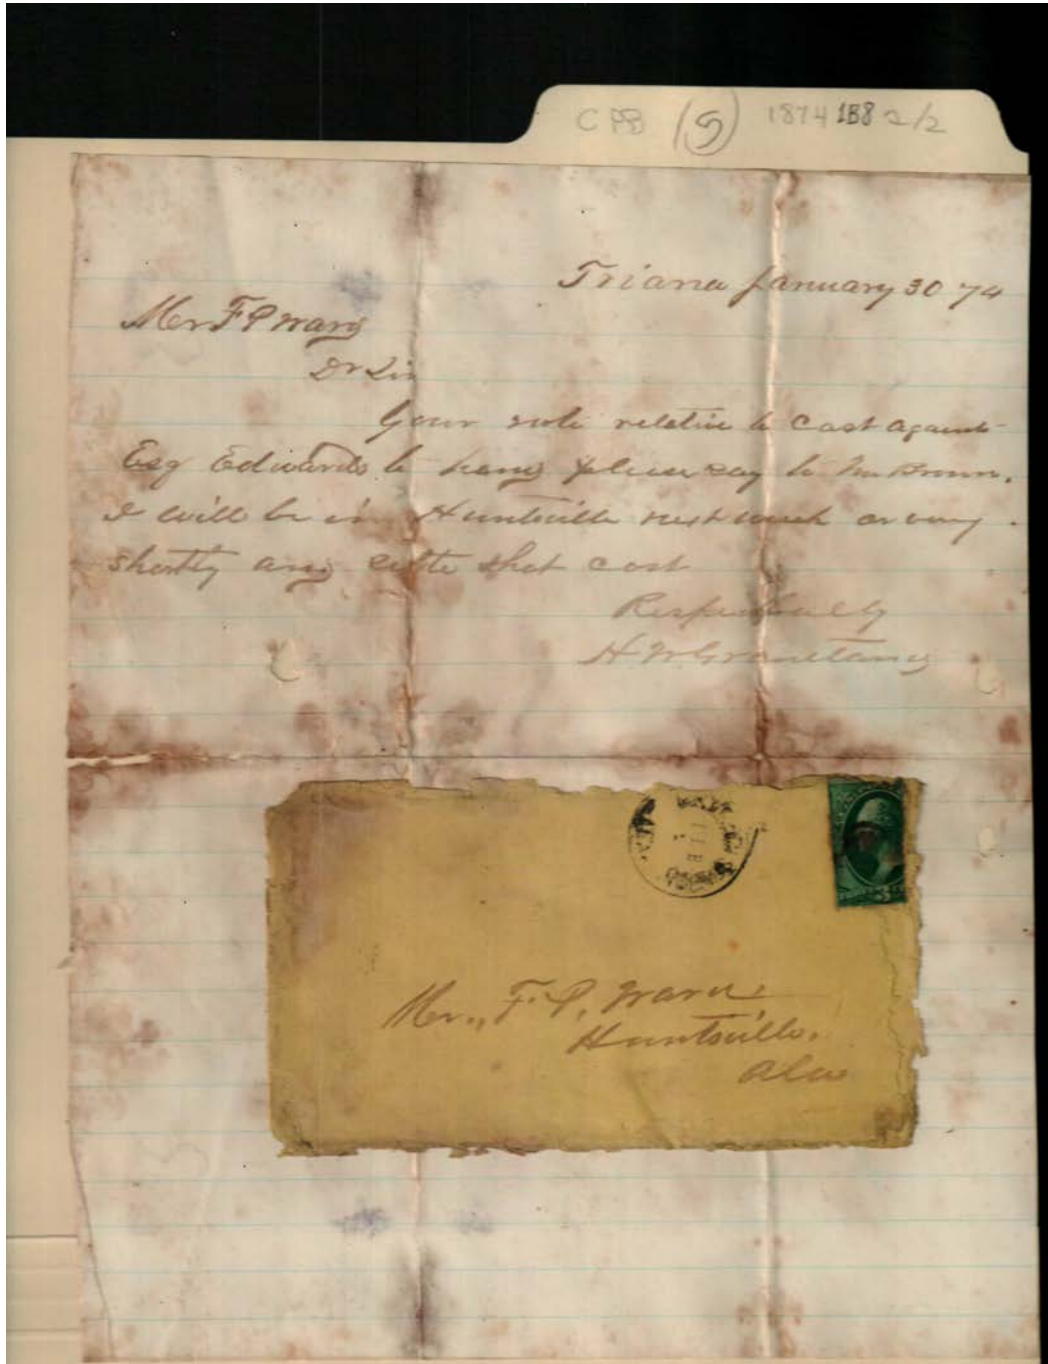 CPB (5) 1874 1B8 2/2
Triana January 30 74
Mr F P Ward
Dr Sir
Your note relative to Cost against
Esq Edwards to hand please say to Mr Brown.
I will be in Huntsville next week or very
shortly and settle that cost
Respectfully
H W
Mr., F. P. Ward
Huntsville.
Ala